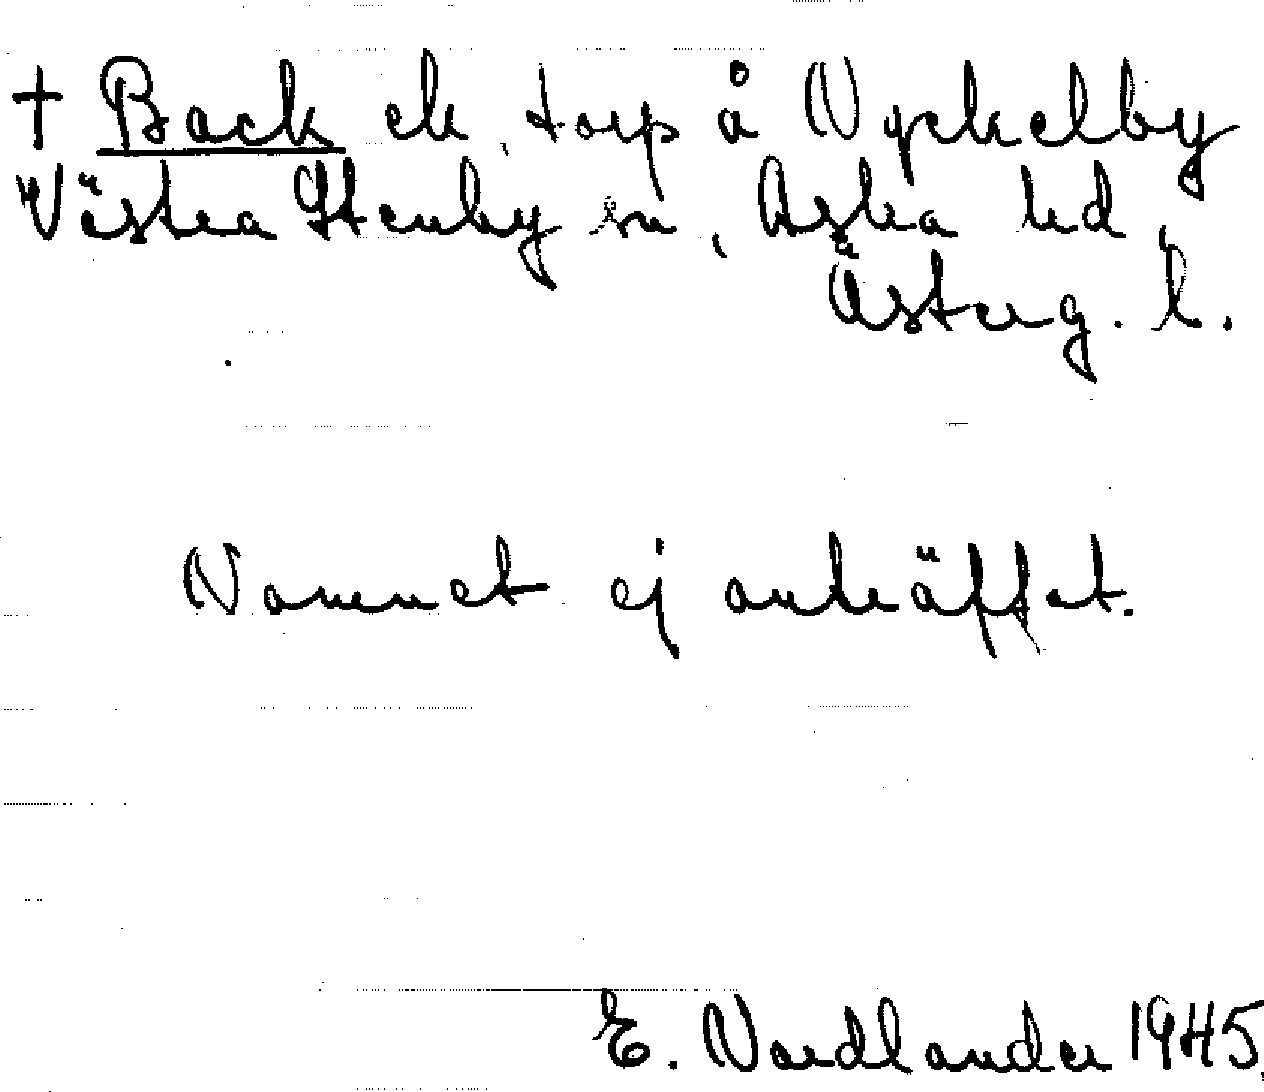 † Back ek, torp å Nyckelby
Västra Stenby sn, Aska hd,
Österg. l.
Namnet ej anträffat.
E. Nordlander 1945